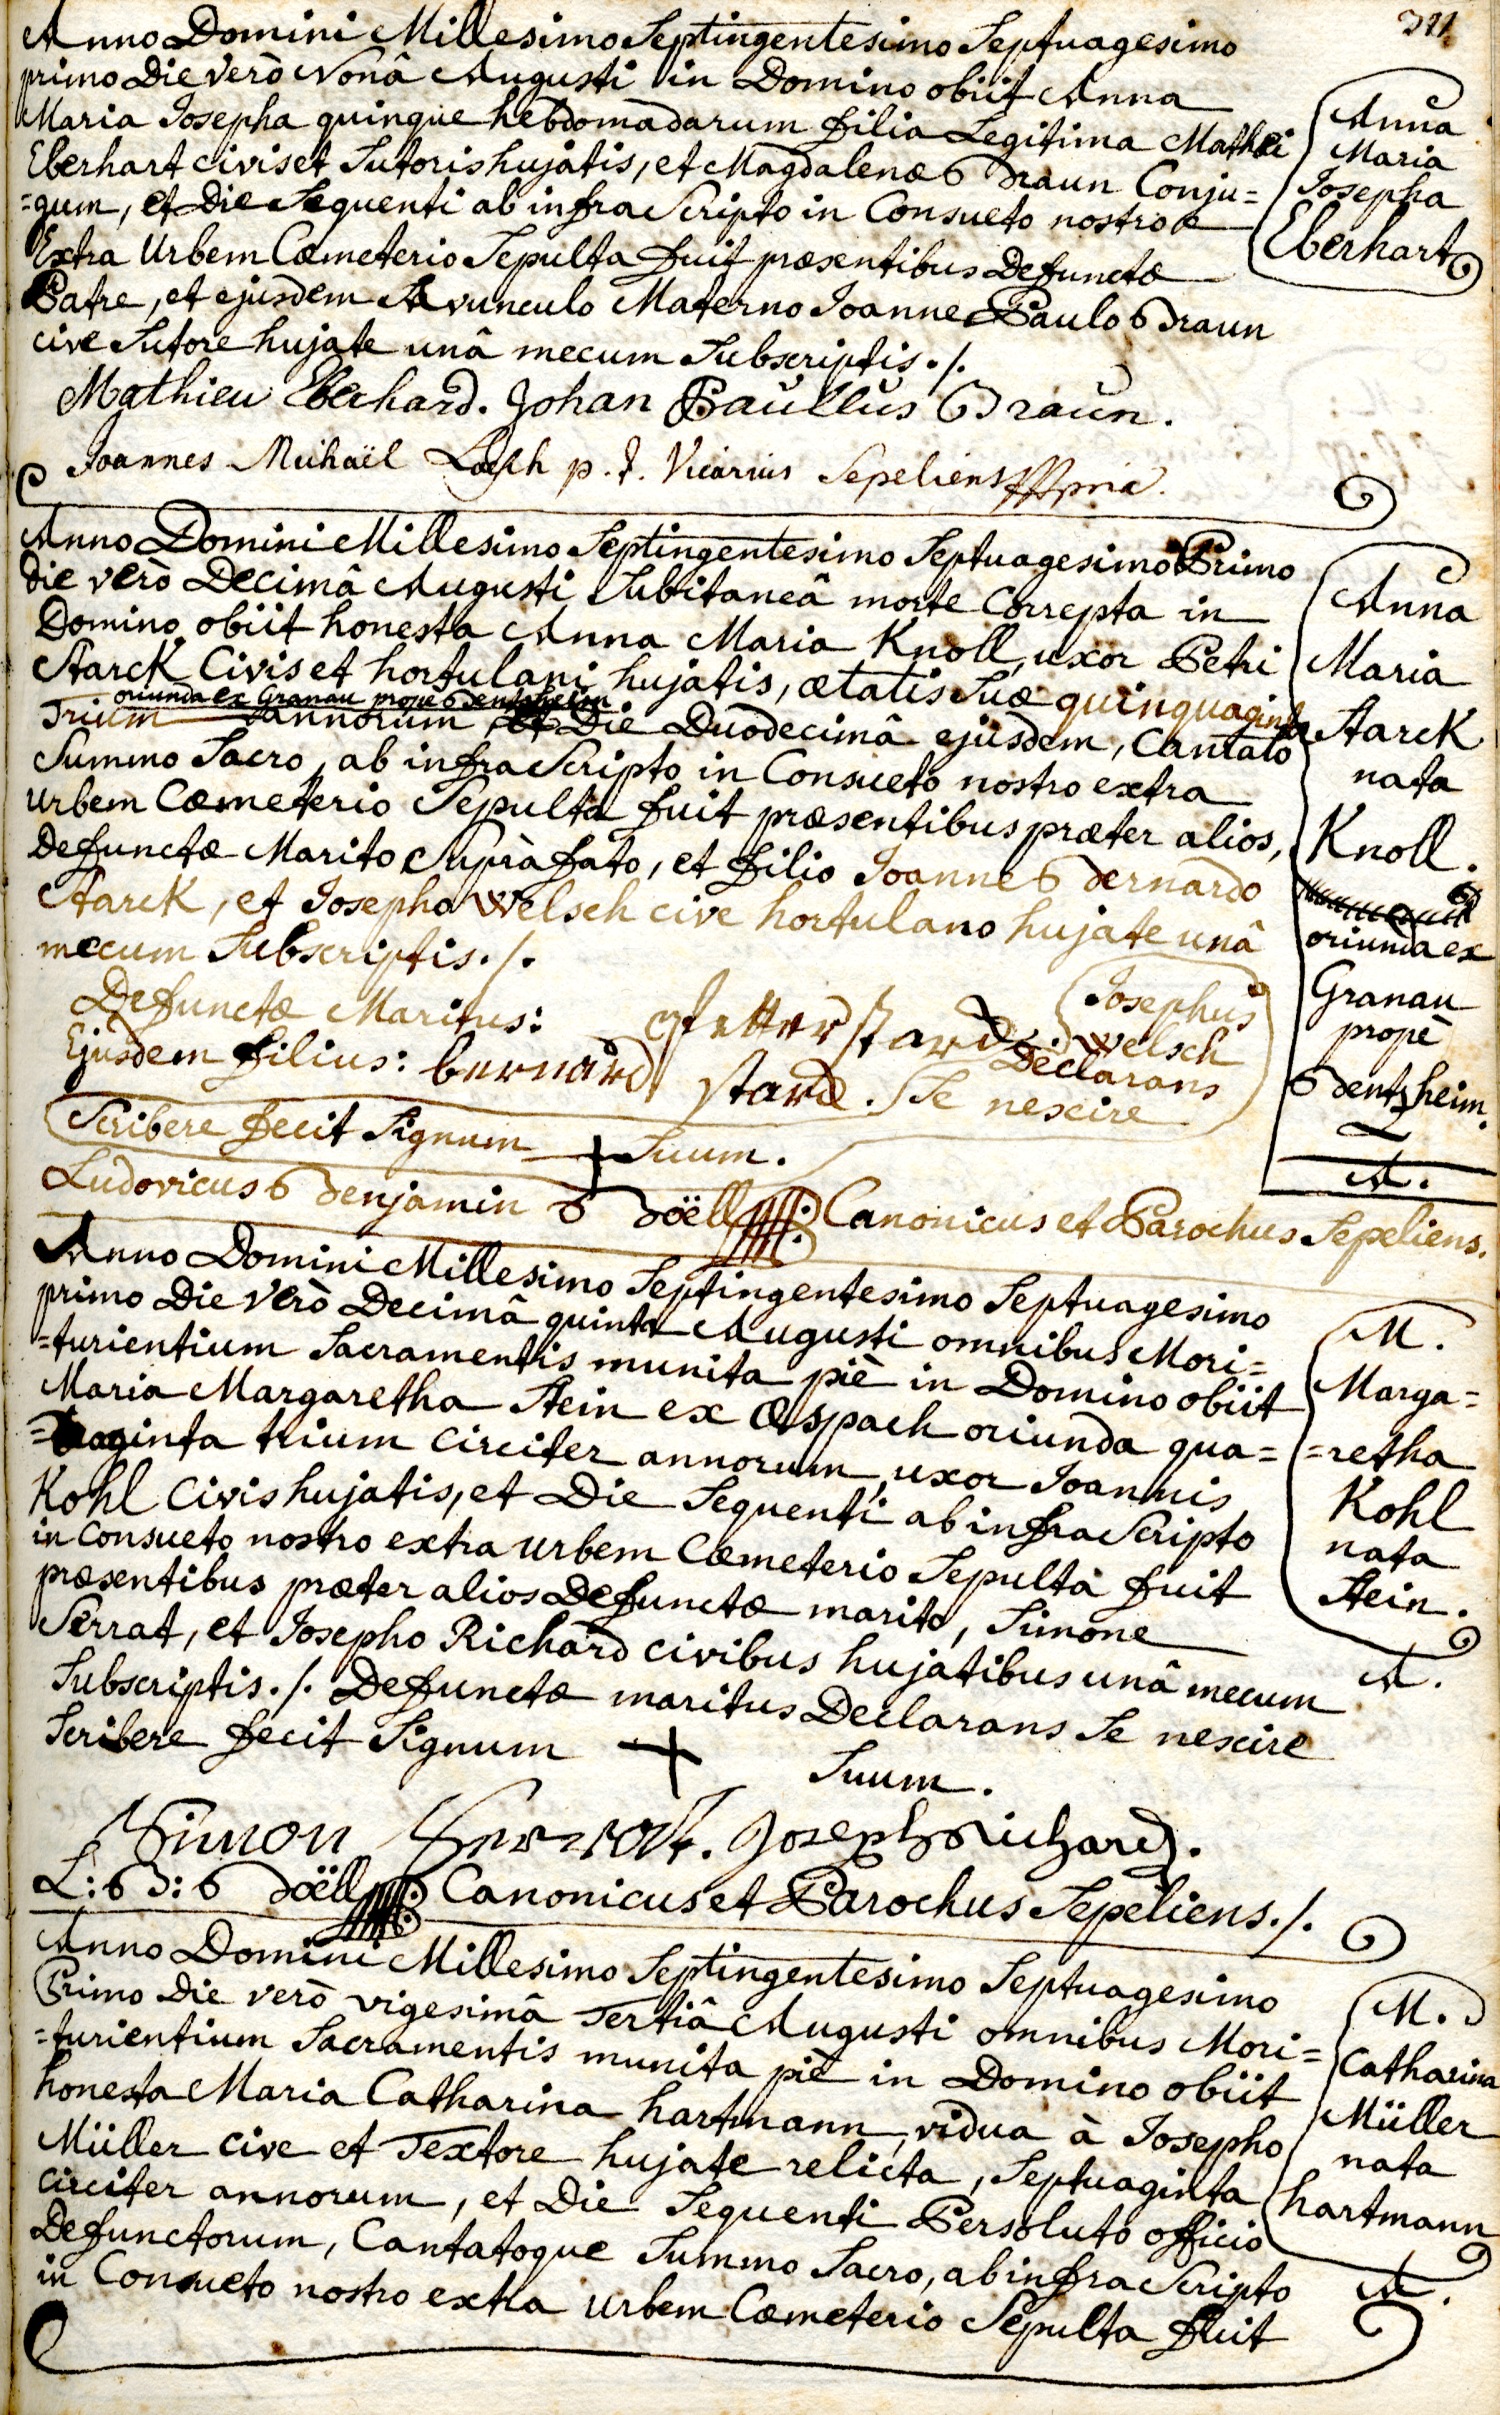 311
Anno Domini Millesimo Septingentesimo Septuagesimo
primo Die verò Nonâ Augusti in Domino obiit Anna
Maria Josepha quinque hebdomadarum filia Legitima Mathei
Eberhart civis et Sutoris hujatis, et Magdalenæ Braun Conju=
=gum, et Die Sequenti ab infra Scripto in Consueto nostro
Extra Urbem Cœmeterio Sepulta fuit præsentibus Defunctæ
Patre, et ejusdem Avunculo Materno Joanne Paulo Braun
cive Sutore hujate unâ mecum Subscriptis ./.
Mathieu Eberhard. Johan Paullus Braun.
Joannes Michaël p. t. Vicarius Sepeliens ppria.
Anna
Maria
Josepha
Eberhart
Anno Domini Millesimo Septingentesimo Septuagesimo Primo
die verò Decimâ Augusti Subitaneâ morte Correpta in
Domino obiit honesta Anna Maria Knoll, uxor Petri
Starck Civis et hortulani hujatis, ætatis Suæ quinquaginta
oriunda ex Granau prope Bentzheim
Trium annorum, et Die Duodecimâ ejusdem, Cantato
Summo Sacro, ab infra Scripto in Consueto nostro extra
Urbem Cœmeterio Sepulta fuit præsentibus præter alios,
Defunctæ Marito Suprà fato, et filio Joanne Bernardo
Starck, et Josepho Welsch cive hortulano hujate unâ
mecum Subscriptis ./.
Defunctæ Maritus: Petter Starck.
Ejusdem filius: bernard Starck.
Josephus
Welsch
Declarans
Se nescire
Scribere fecit Signum + Suum.
Ludovicus Benjamin Boëll Canonicus et Parochus Sepeliens.
Anna
Maria
Starck
nata
Knoll.
oriunda ex
Granau
propè
Bentzheim.
A.
Anno Domini Millesimo Septingentesimo Septuagesimo
primo Die Verò Decimâ quinta Augusti omnibus Mori=
=turientium Sacramentis munita piè in Domino obiit
Maria Margaretha Stein ex Aspach oriunda qua=
=draginta trium circiter annorum, uxor Joannis
Kohl Civis hujatis, et Die Sequenti ab infra Scripto
in Consueto nostro extra urbem Cœmeterio Sepulta fuit
præsentibus præter alios Defunctæ marito, Simone
Serrat, et Josepho Richard civibus hujatibus unâ mecum
Subscriptis ./. Defunctæ maritus Declarans Se nescire
Scribere fecit Signum + Suum.
Simon Serrath. Joseph Richard.
L: B: Boëll Canonicus et Parochus Sepeliens ./.
M.
Marga=
=retha
Kohl
nata
Stein.
A.
Anno Domini Millesimo Septingentesimo Septuagesimo
Primo Die verò vigesimâ Tertiâ Augusti omnibus Mori=
=turientium Sacramentis munita piè in Domino obiit
honesta Maria Catharina hartmann, vidua à Josepho
Müller cive et Textore hujate relicta, Septuaginta
circiter annorum, et Die Sequenti Persoluto officio
Defunctorum, Cantatoque Summo Sacro, ab infra Scripto
in Consueto nostro extra Urbem Cœmeterio Sepulta fuit
M.
Catharina
Müller
nata
hartmann
A.